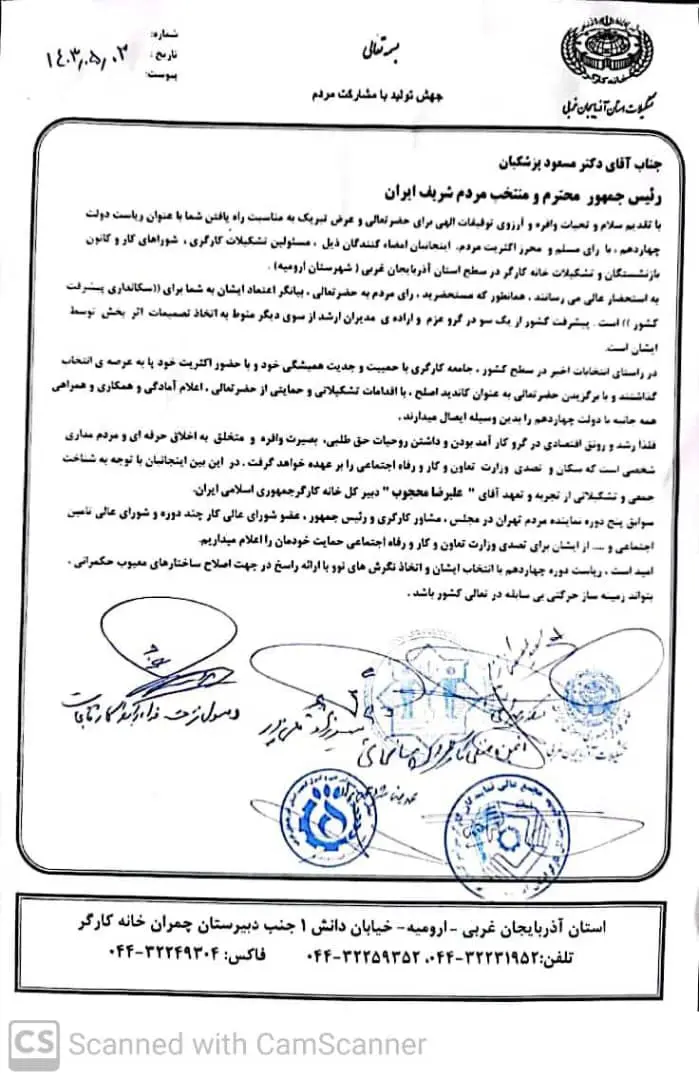 شماره:
تاریخ : ۱۴۰۳,۰۵,۰۳
پیوست:
بسمه تعالی
خانه کارگر
جهش تولید با مشارکت مردم
تشکیلات استان آذربایجان غربی
جناب آقای دکتر مسعود پزشکیان
رئیس جمهور محترم و منتخب مردم شریف ایران
با تقدیم سلام و تحیات وافره و آرزوی توفیقات الهی برای حضرتعالی و عرض تبریک به مناسبت راه یافتن شما با عنوان ریاست دولت
چهاردهم ، با رای مسلم و محرز اکثریت مردم. اینجانبان امضاء کنندگان ذیل ، مسئولین تشکیلات کارگری ، شوراهای کار و کانون
بازنشستگان و تشکیلات خانه کارگر در سطح استان آذربایجان غربی ( شهرستان ارومیه) .
به استحضار عالی می رسانند ، همانطور که مستحضرید ، رای مردم به حضرتعالی ، بیانگر اعتماد ایشان به شما برای ((سکانداری پیشرفت
کشور )) است . پیشرفت کشور از یک سو در گرو عزم و اراده ی مدیران ارشد از سوی دیگر منوط به اتخاذ تصمیمات اثر بخش توسط
ایشان است.
در راستای انتخابات اخیر در سطح کشور ، جامعه کارگری با حمیت و جدیت همیشگی خود و با حضور اکثریت خود پا به عرصه ی انتخاب
گذاشتند و با برگزیدن حضرتعالی به عنوان کاندید اصلح ، با اقدامات تشکیلاتی و حمایتی از حضرتعالی ، اعلام آمادگی و همکاری و همراهی
همه جانبه با دولت چهاردهم را بدین وسیله ایصال میدارند .
فلذا رشد و رونق اقتصادی در گرو کار آمد بودن و داشتن روحیات حق طلبی، بصیرت وافره و متخلق به اخلاق حرفه ای و مردم مداری
شخصی است که سکان و تصدی وزارت تعاون و کار و رفاه اجتماعی را بر عهده خواهد گرفت . در این بین اینجانبان با توجه به شناخت
جمعی و تشکیلاتی از تجربه و تعهد آقای " علیرضا محجوب " دبیر کل خانه کارگرجمهوری اسلامی ایران.
سوابق پنج دوره نماینده مردم تهران در مجلس ، مشاور کارگری و رئیس جمهور ، عضو شورای عالی کار چند دوره و شورای عالی تامین
اجتماعی و .... از ایشان برای تصدی وزارت تعاون و کار و رفاه اجتماعی حمایت خودمان را اعلام میداریم.
امید است ، ریاست دوره چهاردهم با انتخاب ایشان و اتخاذ نگرش های نوو با ارائه راسخ در جهت اصلاح ساختارهای معیوب حکمرانی ،
بتواند زمینه ساز حرکتی بی سابقه در تعالی کشور باشد .
تشکیلات آذربایجان غربی
استان آذربایجان غربی - ارومیه- خیابان دانش ۱ جنب دبیرستان چمران خانه کارگر
تلفن:۳۲۲۳۱۹۵۲-۰۴۴، ۳۲۲۵۹۳۵۲-۰۴۴ فاکس: ۳۲۲۴۹۳۰۴-۰۴۴
CS Scanned with CamScanner